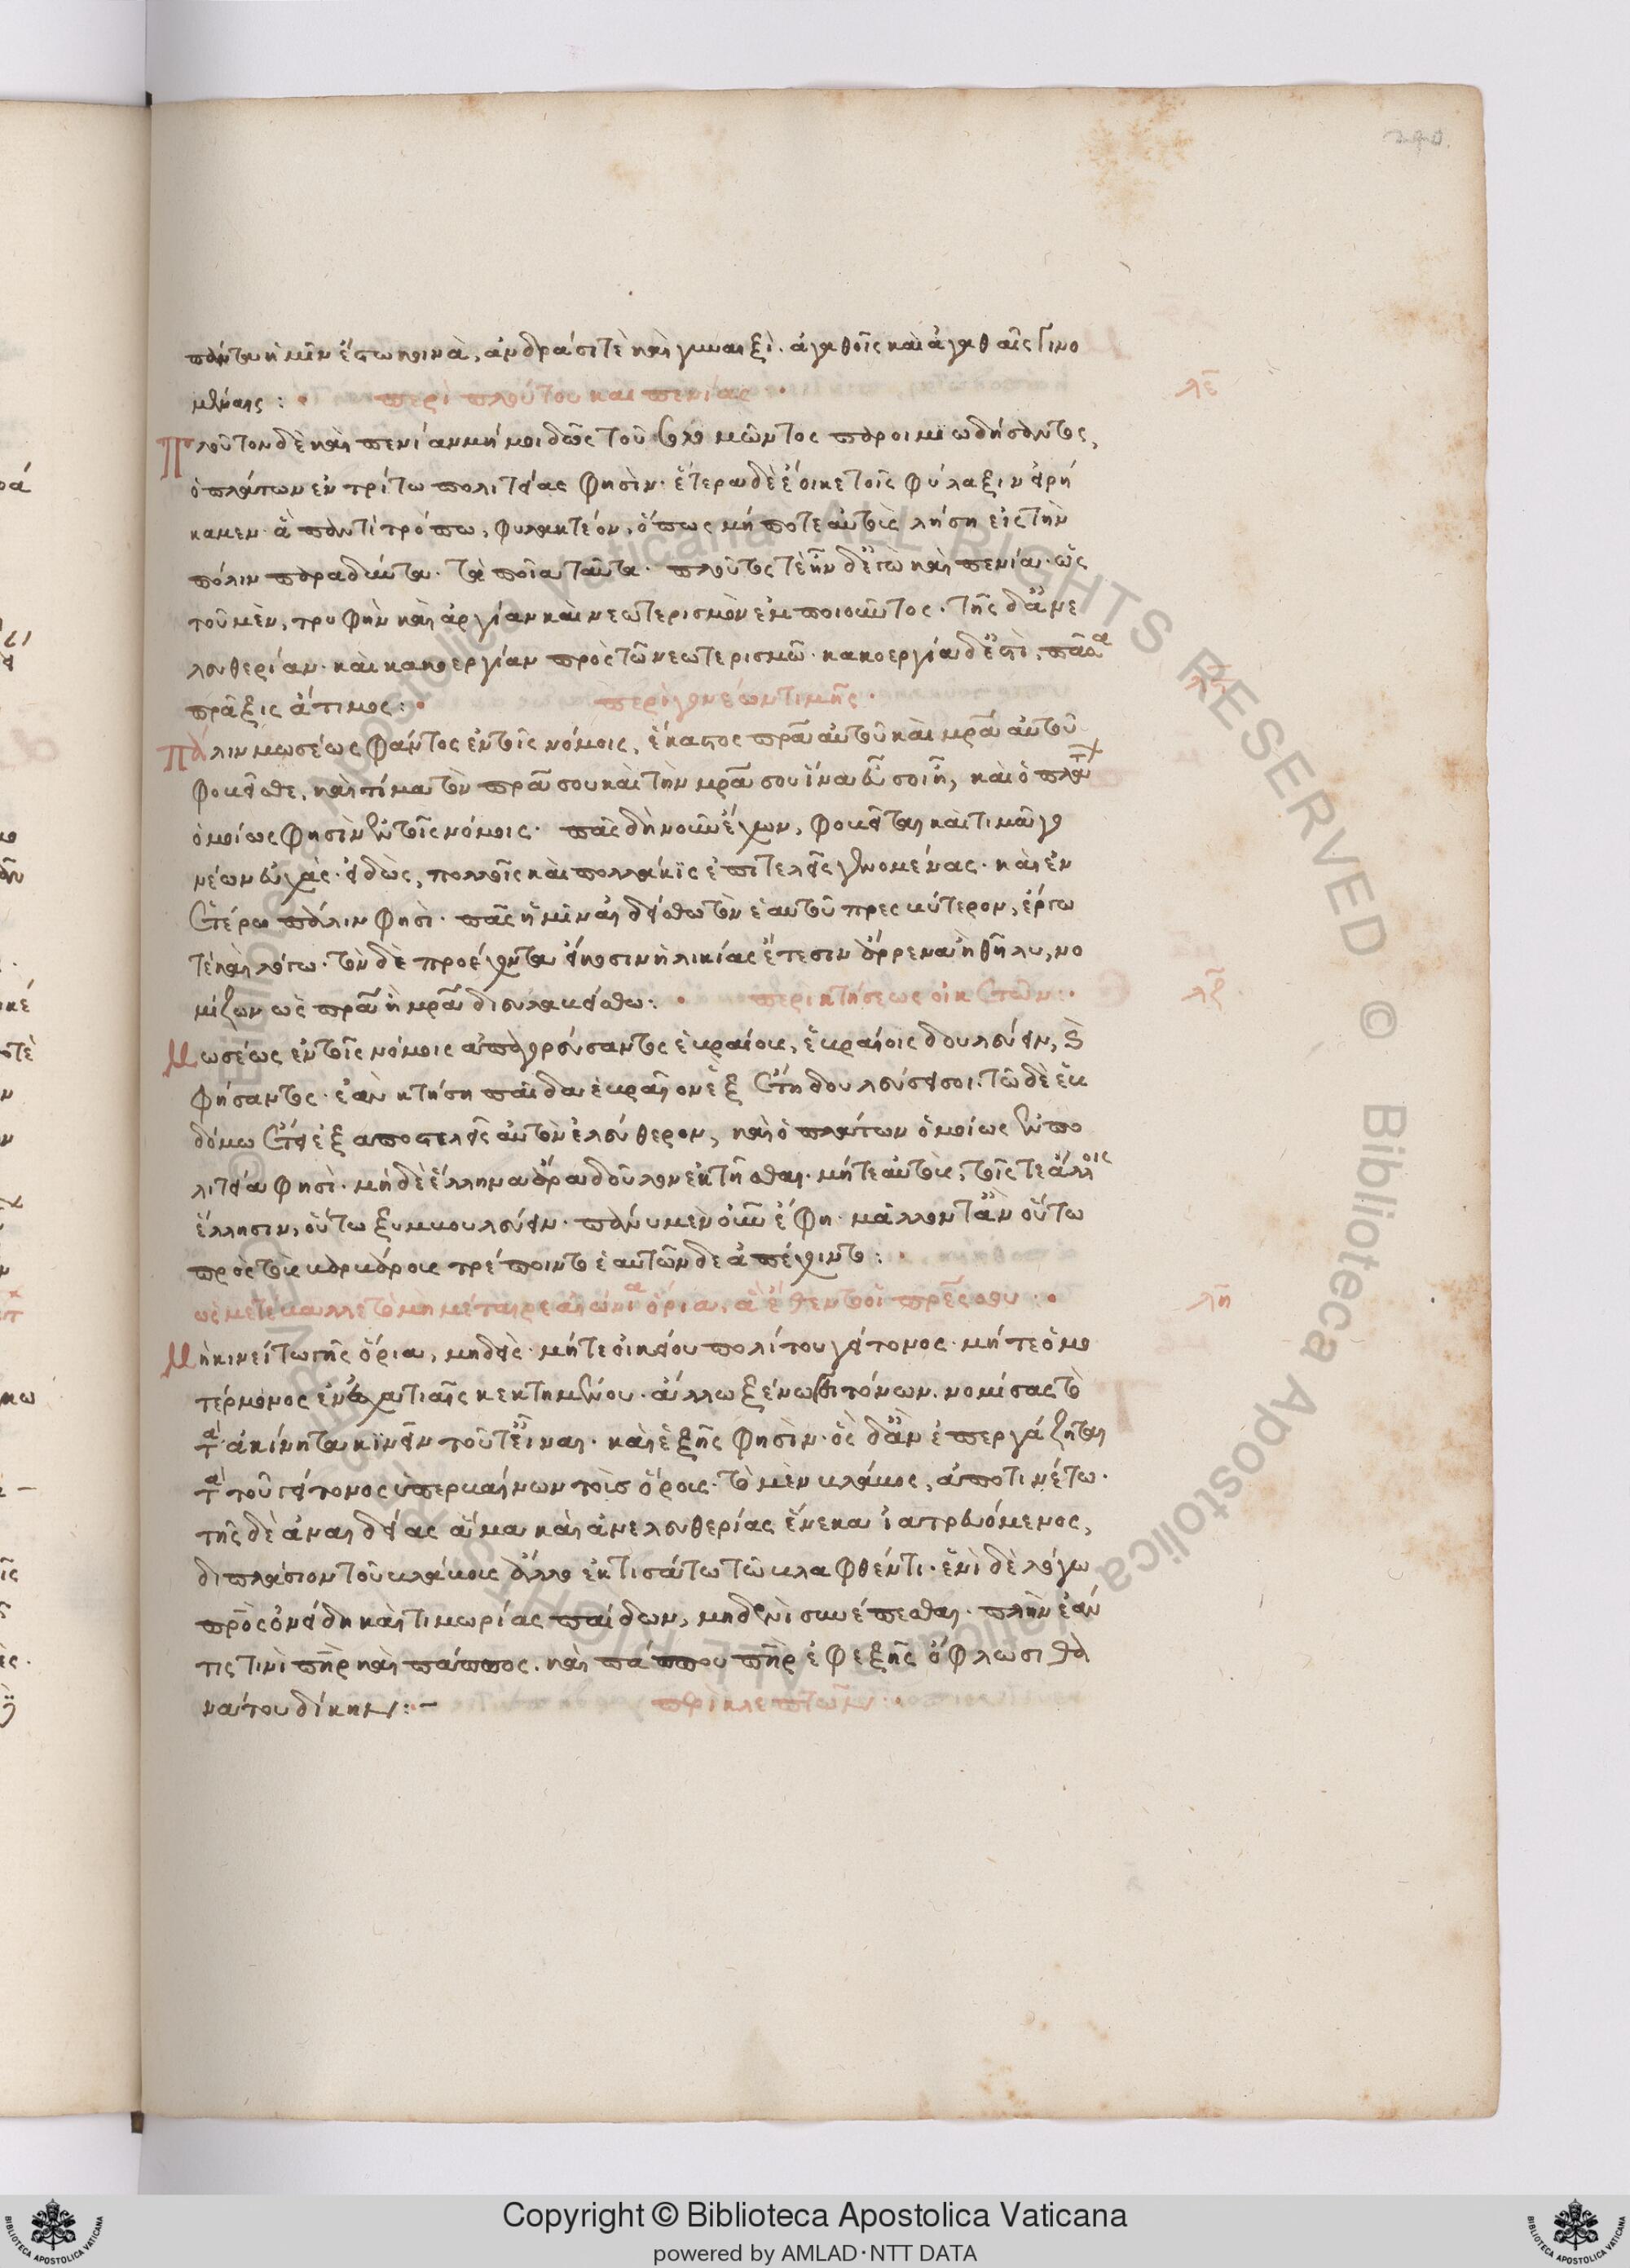 290
πάντα ἡμῖν ἔστω κοινὰ, ἀνδράσί τὲ καὶ γυναιξὶ. ἀγαθοῖς καὶ ἀγαθαῖς γινο
μέναις : περὶ πλούτου καὶ πενίας λε
Πλοῦτον δὲ καὶ πενίαν μή μοι δῷς τοῦ σολομῶντος παροιμιωδήσαντος,
ὁ πλάτων ἐν τρίτω πολιτείας φησὶν· ἕτερα δὲ ἔοικε τοῖς φύλαξιν εὑρή
καμεν· ἃ παντὶ τρόπω, φυλακτέον, ὅπως μή ποτε αὐτοὺς λήση εἰς τὴν
πόλιν παραδύντα. τὰ ποῖα ταῦτα· πλοῦτός τὲ ἦν δ' ἐγὼ καὶ πενία· ὡς
τοῦ μὲν, τρυφὴν καὶ ἀργίαν καὶ νεωτερισμὸν ἐμποιοῦντος. τῆς δ' ἀνε
λευθερίαν. καὶ κακοεργίαν πρὸς τῶ νεωτερισμῶ. κακοεργία δ' ἐστὶ, πᾶσα
πρᾶξις ἄτιμος : περὶ γονέων τιμῆς · λϛ
Πάλιν μωσέως φάντος ἐν τοῖς νόμοις, ἕκαστος πρα αὐτοῦ καὶ μρα αὐτοῦ
φοβεῖσθε, καὶ τίμα τὸν πρα σου καὶ τὴν μρα σου ἵνα εὖ σοι ἦ, καὶ ὁ πλάτ
ὁμοίως φησὶν ἐν τοῖς νόμοις. πᾶς δὴ νοῦν ἔχων, φοβεῖται καὶ τιμᾶ γο
νέων εὐχὰς. εἰδὼς, πολλοῖς καὶ πολλάκις ἐπιτελεῖς γενομένας. καὶ ἐν
ἑτέρω πάλιν φησὶ. πᾶς ἡμῖν αἰδείσθω τὸν ἑαυτοῦ πρεσβύτερον, ἔργω
τὲ καὶ λόγω. τὸν δὲ προέχοντα εἴκοσιν ἡλικίας ἔτεσιν ἄρρενα ἢ θῆλυ, νο
μίζων ὡς πρα ἢ μρα διευλαβείσθω : περὶ κτήσεως οἰκετῶν : λζ
Μωσέως ἐν τοῖς νόμοις ἀπαγορεύσαντος ἑβραίους, ἑβραίοις δουλεύειν, καὶ
φήσαντος· ἐὰν κτήση παῖδα ἑβραῖον ἓξ ἔτη δουλεύσει σοι. τῶ δὲ ἑβ
δόμω ἔτει ἐξαποστελεῖς αὐτὸν ἐλεύθερον, καὶ ὁ πλάτων ὁμοίως ἐν πο
λιτεία φησὶ. μὴ δὲ ἕλληνα ἄρα δοῦλον ἐκτῆσθαι. μήτε αὐτοὺς, τοῖς τε ἄλλοις
ἕλλησιν, οὕτω ξυμβουλεύειν. πάνυ μὲν οὖν ἔφη. μᾶλλον τ' ἂν οὕτω
πρὸς τοὺς βαρβάρους τρέποιντο ἑαυτῶν δε ἀπέχοιντο :
Μὴ κινείτω γῆς ὅρια, μηδεὶς. μήτε οἰκείου πολίτου γείτονος. μήτε ὁμο
τέρμονος ἐν ἐσχατιαῖς κεκτημένου. ἄλλω ξένω γειτονῶν. νομίσας τὸ
τὰ ἀκίνητα κινεῖν τοῦτ' εἶναι. καὶ ἑξῆς φησὶν. ὃς δ' ἂν ἐπεργάζηται
τὰ τοῦ γείτονος ὑπερβαίνων τοὺς ὅρους. τὸ μὲν βλάβος, ἀποτινέτω.
τῆς δὲ ἀναιδείας ἅμα καὶ ἀνελευθερίας ἕνεκα ἰατρευόμενος,
διπλάσιον τοῦ βλάβους ἄλλο ἐκτισάτω τῶ βλαφθέντι. ἑνὶ δὲ λόγω
πρὸς ὀνείδη καὶ τιμωρίας παίδων, μηδενὶ συνέπεσθαι. πλὴν ἐάν
τις τινὶ πηρ καὶ πάππος. καὶ πάππου πηρ ἐφεξῆς ὄφλωσι θα
νάτου δίκην : περὶ κλεπτῶν
λη
Copyright © Biblioteca Apostolica Vaticana
powered by AMLAD·NTT DATA